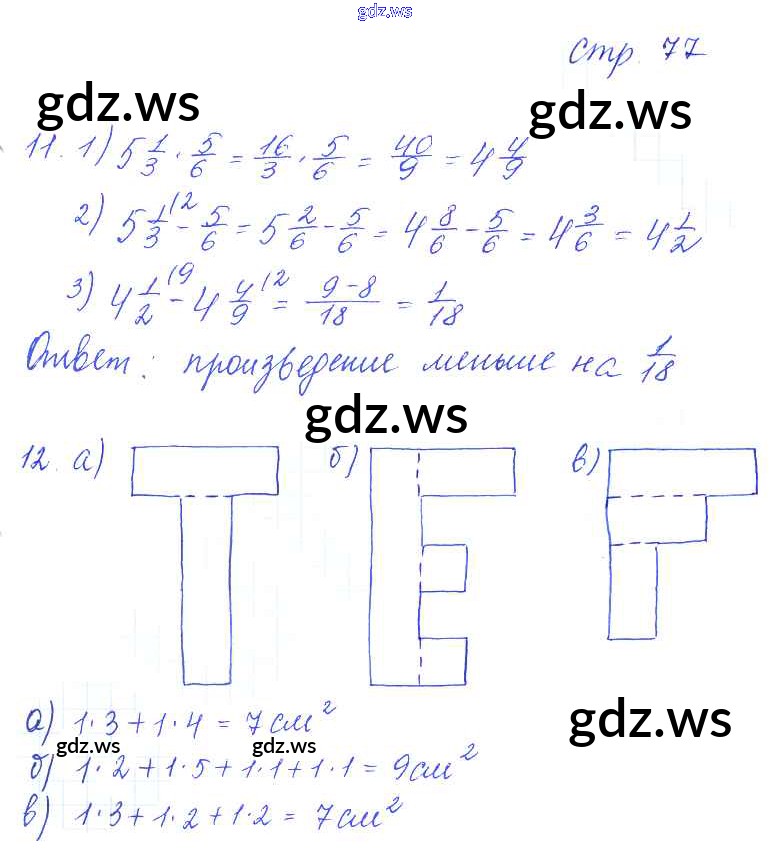 gdz.ws
стр. 77
gdz.ws gdz.ws
11. 1) 5 1/3 · 5/6 = 16/3 · 5/6 = 40/9 = 4 4/9
2) 5 1/3 (2 - 5/6 = 5 2/6 - 5/6 = 4 8/6 - 5/6 = 4 3/6 = 4 1/2
3) 4 1/2 (9 - 4 4/9 (2 = 9-8/18 = 1/18
Ответ: произведение меньше на 1/18
gdz.ws
12. а) б) в)
gdz.ws
а) 1·3+1·4 = 7см²
gdz.ws gdz.ws
б) 1·2+1·5+1·1+1·1 = 9см²
в) 1·3+1·2+1·2 = 7см²